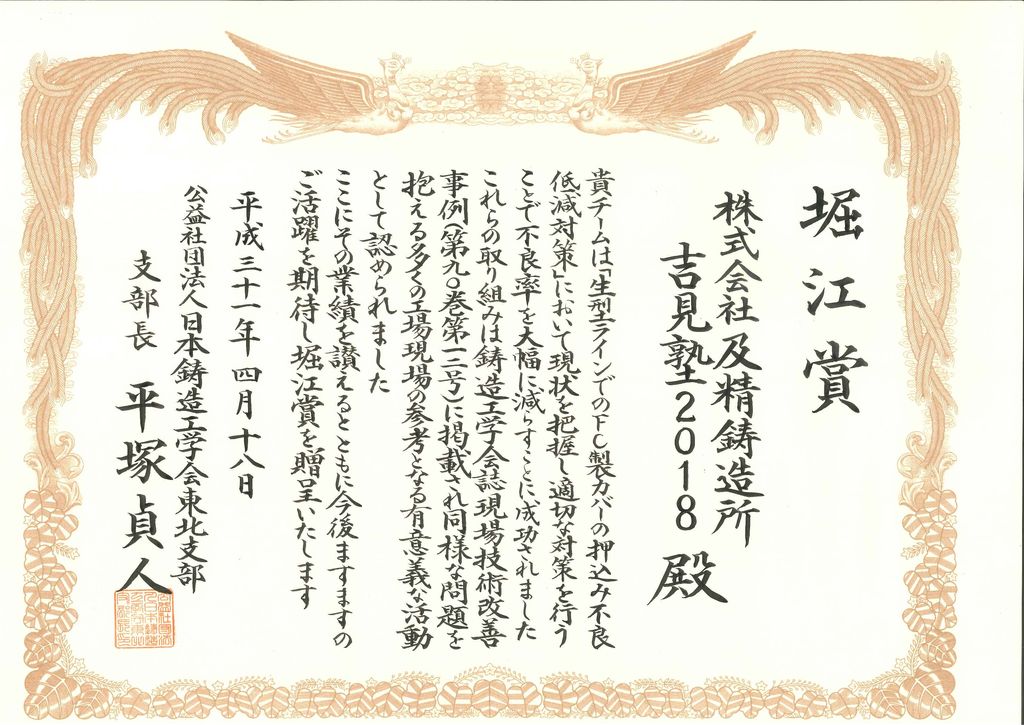 堀江賞
株式会社及精鋳造所
吉見塾2018 殿
貴チームは「生型ラインでのFC製カバーの押込み不良
低減対策」において現状を把握し適切な対策を行う
ことで不良率を大幅に減らすことに成功されました
これらの取り組みは鋳造工学会誌現場技術改善
事例(第九〇巻第一二号)に掲載され同様な問題を
抱える多くの工場現場の参考となる有意義な活動
として認められました
ここにその業績を讃えるとともに今後ますますの
ご活躍を期待し堀江賞を贈呈いたします
平成三十一年四月十八日
公益社団法人日本鋳造工学会東北支部
支部長 平塚貞人